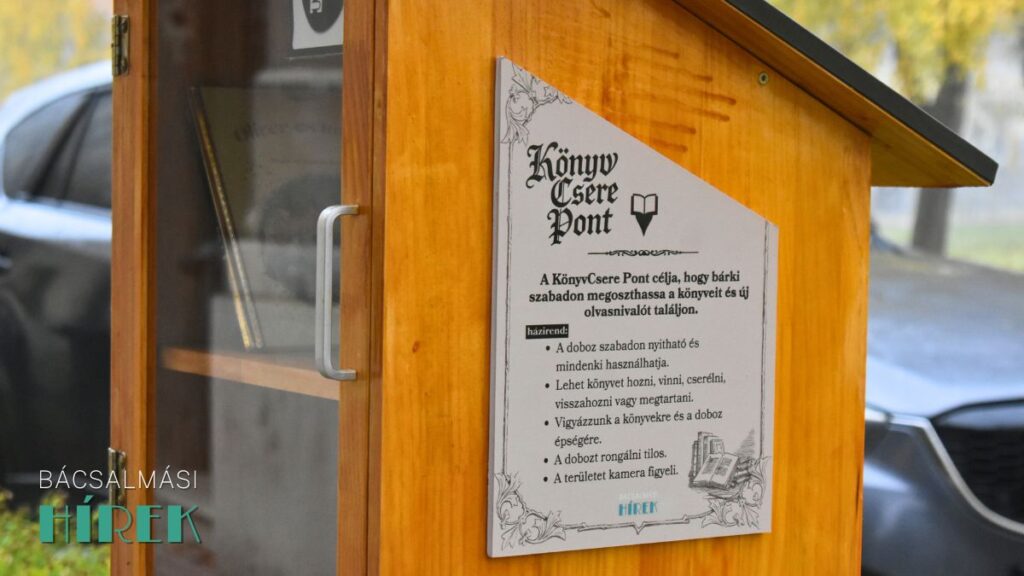 Könyv
Csere
Pont
A KönyvCsere Pont célja, hogy bárki
szabadon megoszthassa a könyveit és új
olvasnivalót találjon.
házirend:
• A doboz szabadon nyitható és
mindenki használhatja.
• Lehet könyvet hozni, vinni, cserélni,
visszahozni vagy megtartani.
• Vigyázzunk a könyvekre és a doboz
épségére.
• A dobozt rongálni tilos.
• A területet kamera figyeli.
BÁCSALMÁSI
HÍREK
BÁCSALMÁSI
HÍREK